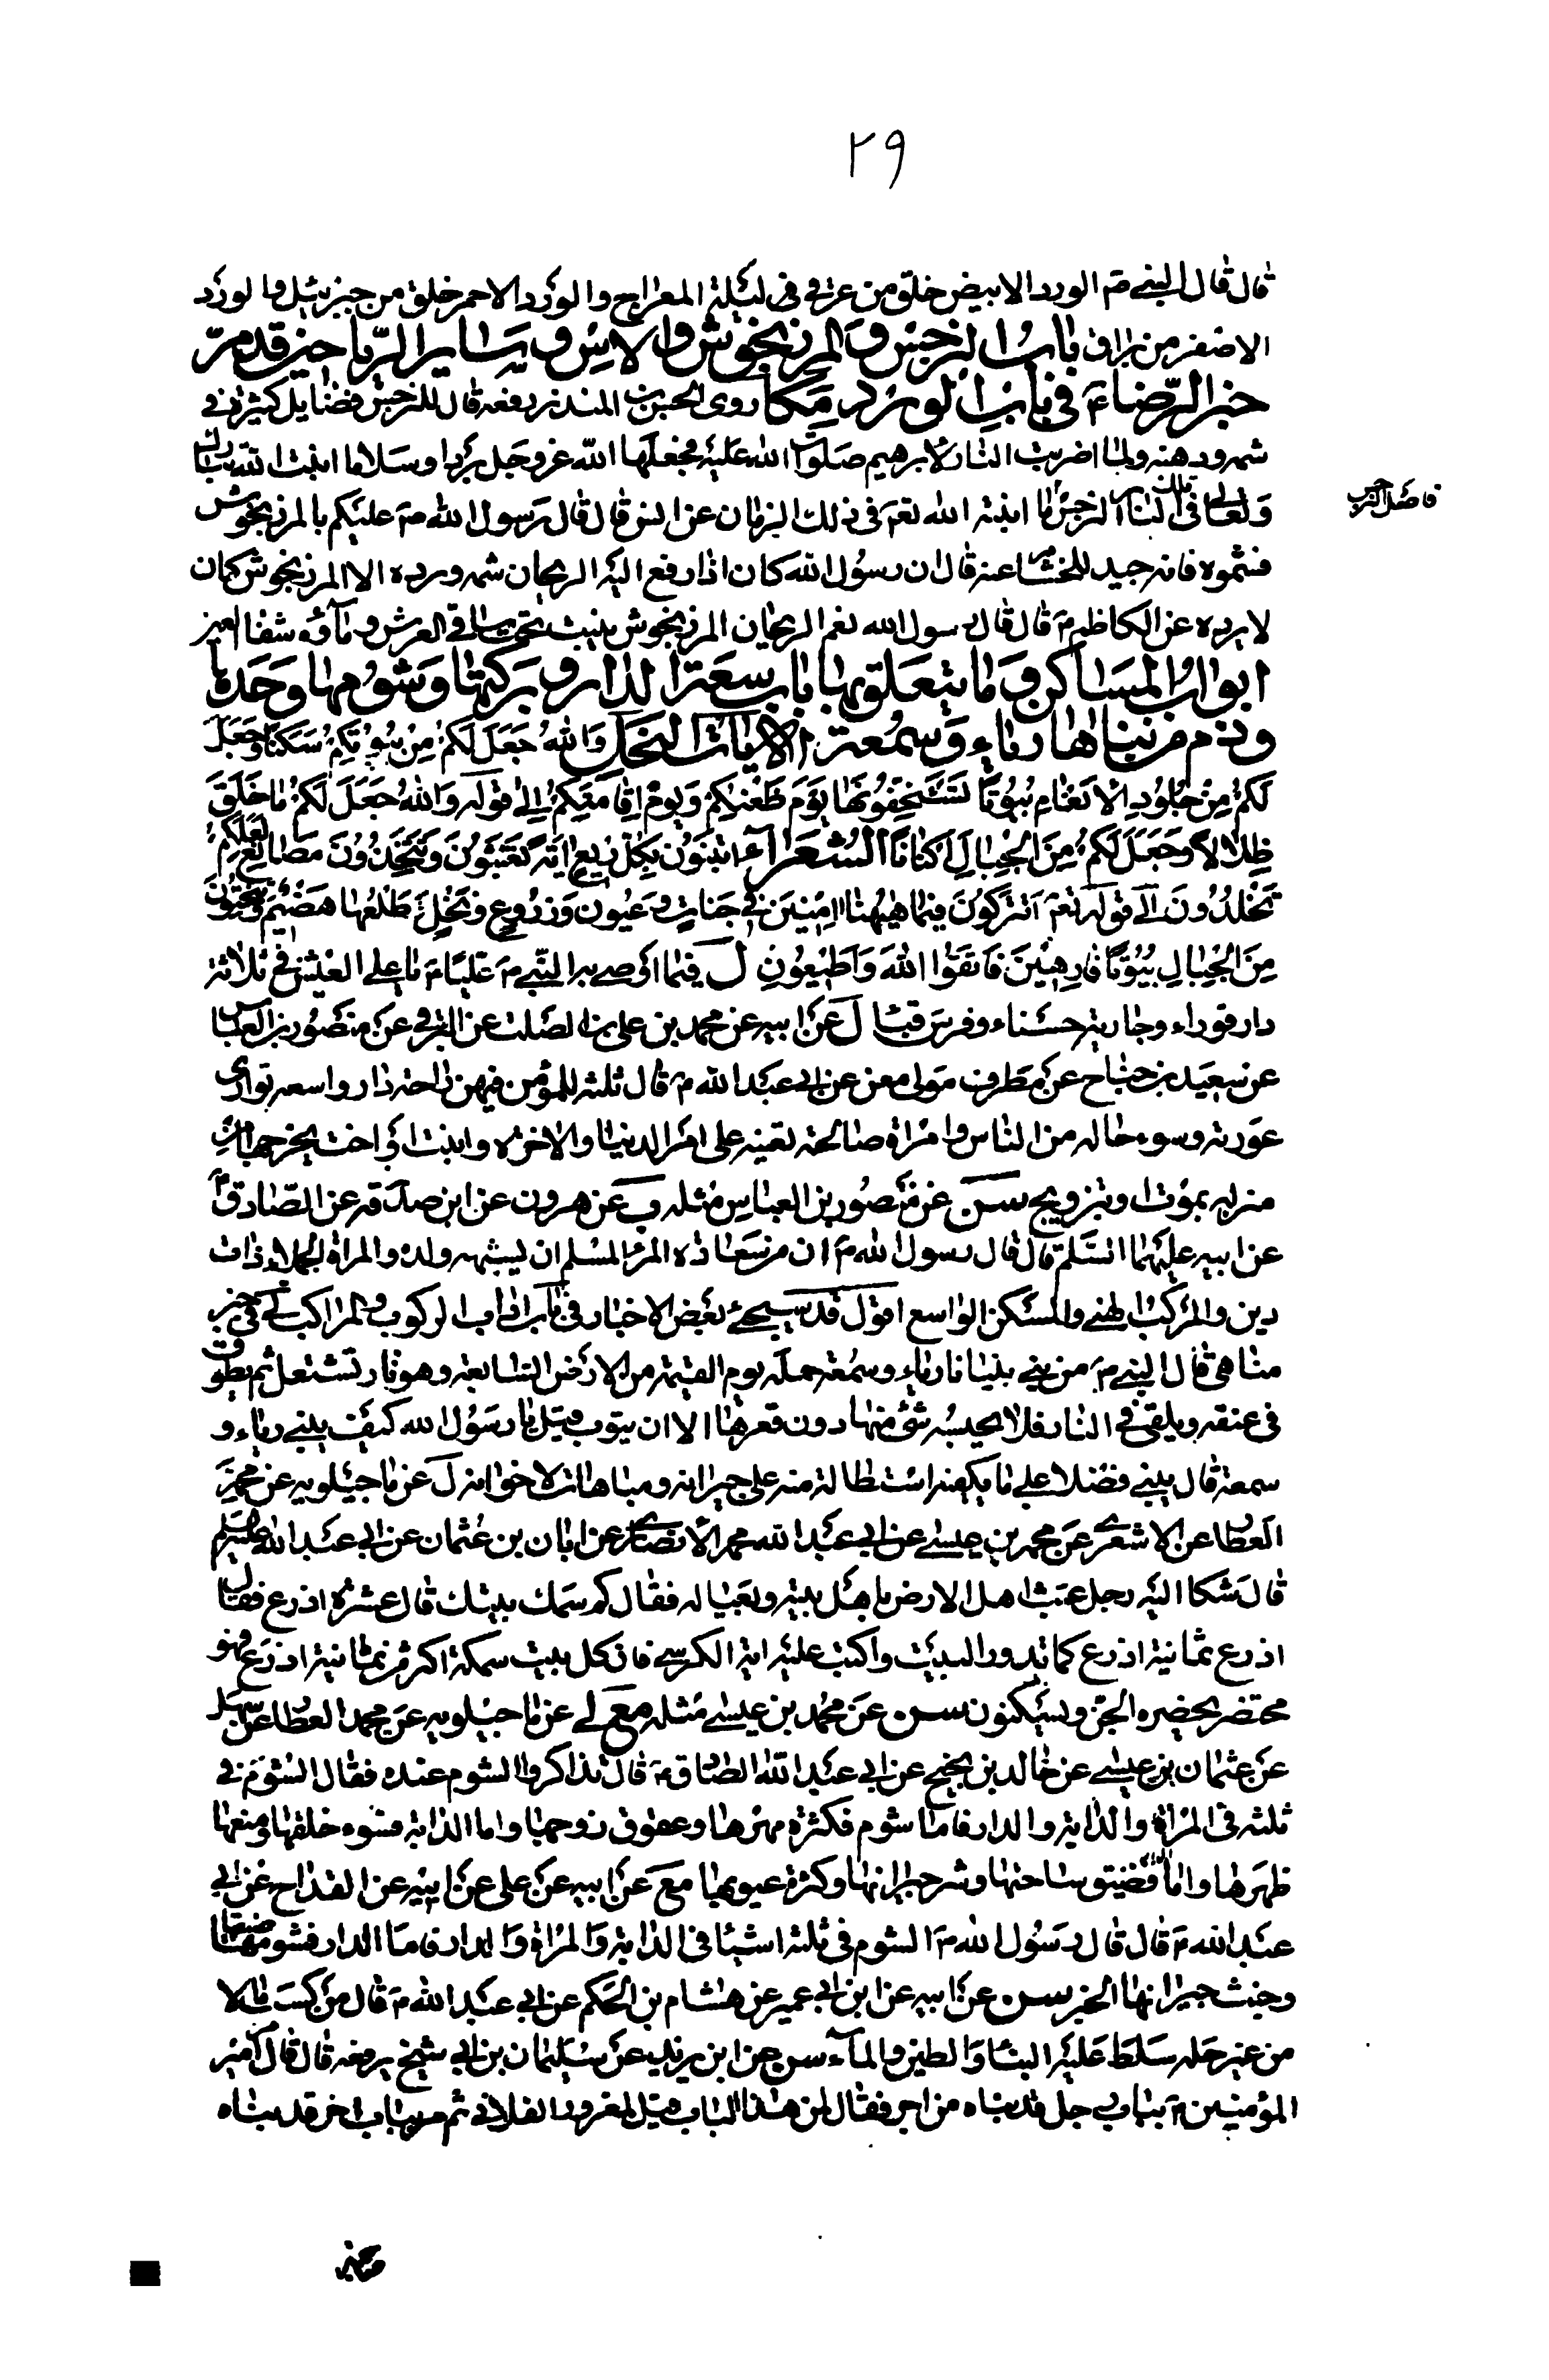 ٢٩
قال قال النبي ص الورد الابيض خلق من عرقي في ليلة المعراج والورد الاحمر خلق من جبرئيل والورد
الاصفر من براق باب النرجس والمرزنجوش والاس وساير الرياحين قد مر
خبر الرضاء ع في باب الورد مكا روى الحسن بن المنذر رفعه قال للنرجس فضايل كثيرة في
شمه ودهنه ولما اضرمت النار لابرهيم صلوات الله عليه فجعلها الله عز وجل بردا وسلاما انبت الله تبارك
وتعالى في تلك النار النرجس ما انبته الله تعم في ذلك الزمان عن انس قال قال رسول الله ص عليكم بالمرزنجوش
فاصل النرجس
فشموه فانه جيد للخشام عنه قال ان رسول الله كان اذا رفع اليه الريحان شمه ورده الا المرزنجوش كان
لا يرده عن الكاظم ع قال قال رسول الله نعم الريحان المرزنجوش ينبت تحت ساقي العرش وماؤه شفا العين
ابواب المساكن وما يتعلق بها باب سعة الدار وبركتها وشومها وحدها
وذم من بناها رياء وسمعة الايات النحل والله جعل لكم من بيوتكم سكنا وجعل
لكم من جلود الانعام بيوتا تستخفونها يوم ظعنكم ويوم اقامتكم الى قوله والله جعل لكم ما خلق
ظلالا وجعل لكم من الجبال اكنانا الشعراء اتبنون بكل ريع اية تعبثون وتتخذون مصانع لعلكم
تخلدون الى قوله تعم اتتركون فيما هيهنا امنين في جنات وعيون وزروع ونخل طلعها هضيم وتنحتون
من الجبال بيوتا فارهين فاتقوا الله واطيعون ل فيما اوصى به النبي ص عليا ع يا علي العيش في ثلاثة
دار قوراء وجارية حسناء وفرس قباء ل عن ابيه عن محمد بن علي بن الصلت عن البرقي عن منصور بن العباس
عن سعيد بن جناح عن مطرف مولى معن عن ابي عبد الله ع قال ثلثة للمؤمن فيهن راحة دار واسعة تواري
عورته وسوء حاله من الناس وامراة صالحة تعينه على امر الدنيا والاخره وابنة او اخت يخرجها من
منزله بموت او بتزويج سن عن منصور بن العباس مثله ب عن هرون عن ابن صدقه عن الصادق ع
عن ابيه عليهما السلم قال قال رسول الله ص ان من سعادة المرء المسلم ان يشبهه ولده والمراة الجملاء ذات
دين والمركب الهني والمسكن الواسع اقول قد سيجئ بعض الاخبار في باب اداب الركوب والمراكب لي في خبر
مناهي قال النبي ص من بنى بنيانا رياء وسمعة حمله يوم القيمة من الارض السابعة وهو نار تشتعل ثم يطوق
في عنقه ويلقى في النار فلا يحبسه شئ منها دون قعرها الا ان يتوب قيل يا رسول الله كيف يبني رياء و
سمعة قال يبني فضلا على ما يكفيه استطالة منه على جيرانه ومباهاة لاخوانه ل عن ماجيلويه عن محمد
العطار عن الاشعري عن محمد بن عيسى عن ابي عبد الله محمد الانصاري عن ابان بن عثمان عن ابي عبد الله عليه السلم
قال شكا اليه رجل عبث اهل الارض باهل بيته وبعياله فقال كم سمك بيتك قال عشرة اذرع فقال
اذرع ثمانية اذرع كما تدور البيت واكتب عليه اية الكرسي فان كل بيت سمكه اكثر من ثمانية اذرع فهو
محتضر يحضره الجن ويسكنون سن عن محمد بن عيسى مثله مع لي عن ماجيلويه عن محمد العطار عن سهل
عن عثمان بن عيسى عن خالد بن نجيح عن ابي عبد الله الصادق ع قال تذاكروا الشوم عنده فقال الشؤم في
ثلثه في المراة والدابة والدار فاما شوم فكثرة مهرها وعقوق زوجها واما الدابة فسوء خلقها ومنعها
ظهرها واما الدار فضيق ساحتها وشر جيرانها وكثرة عيوبها مع عن ابيه عن علي عن ابيه عن القداح عن ابي
عبد الله ع قال قال رسول الله ص الشوم في ثلثة اشيا في الدابة والمراة والدار فاما الدار فشومها ضيقها
وخبث جيرانها الخبر سن عن ابيه عن ابن ابي عمير عن هشام بن الحكم عن ابي عبد الله ع قال من كسب مالا
من غير حله سلط عليه البناء والطين والماء سن عن ابن يزيد عن سليمان بن ابي شيخ يرفعه قال قال امير
المؤمنين ع بباب رجل قد بناه من اجر فقال لمن هذا الباب قيل لمغرور الفلاني ثم مر بباب اخر قد بناه